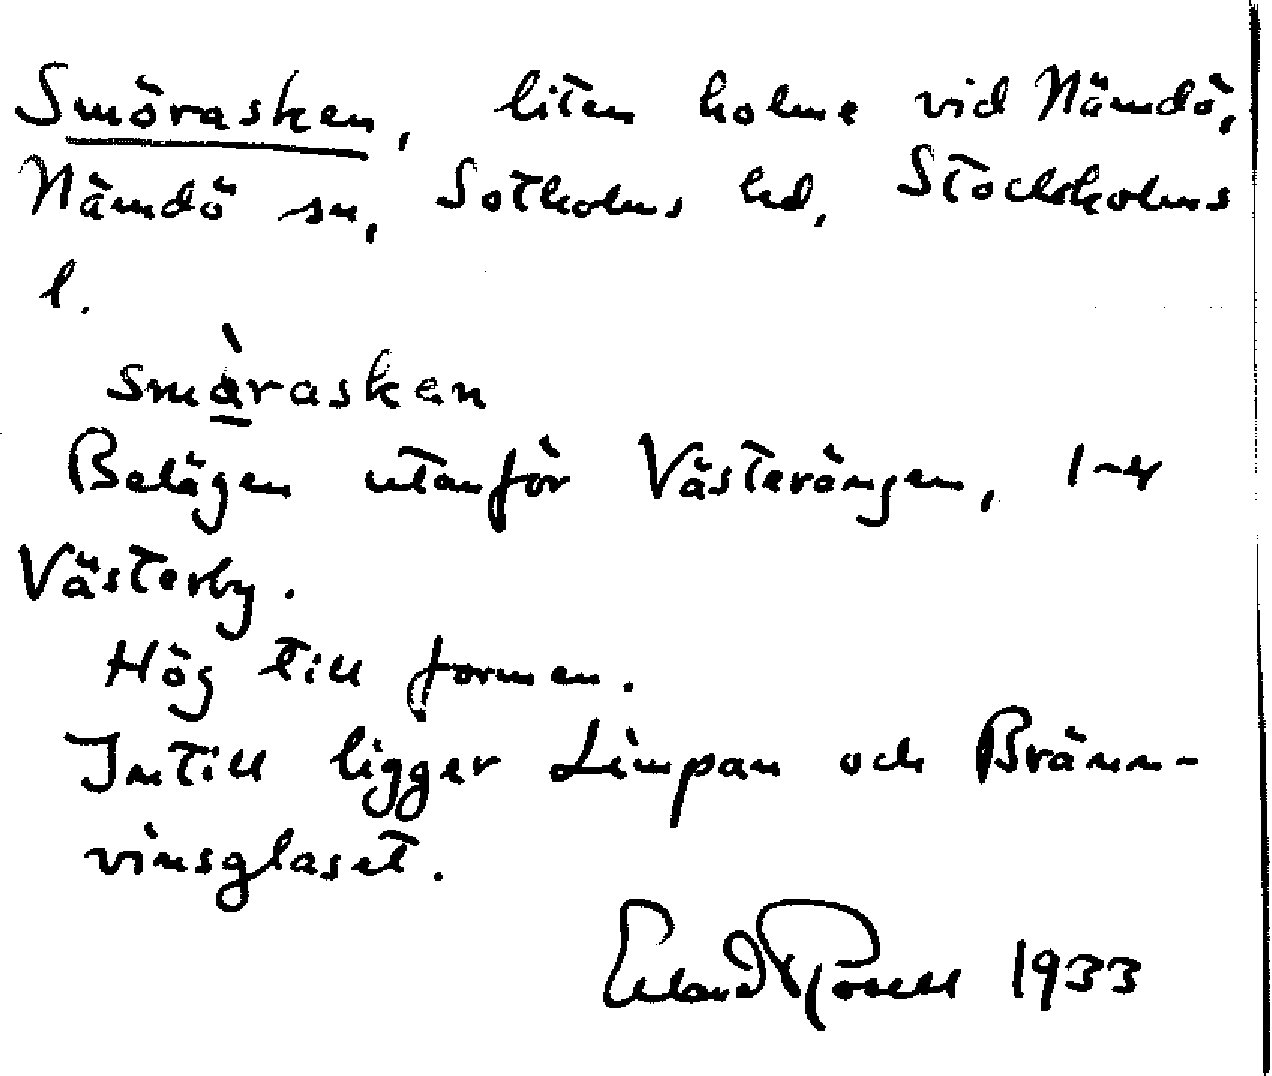 Smörasken, liten holme vid Nämdö,
Nämdö sn, Sotholms hd, Stockholms
l.
smàrasken
Belägen utanför Västerängen, 1~4
Västerby.
Hög till formen.
Intill ligger Limpan och Bränn-
vinsglaset.
Erland Rosell 1933